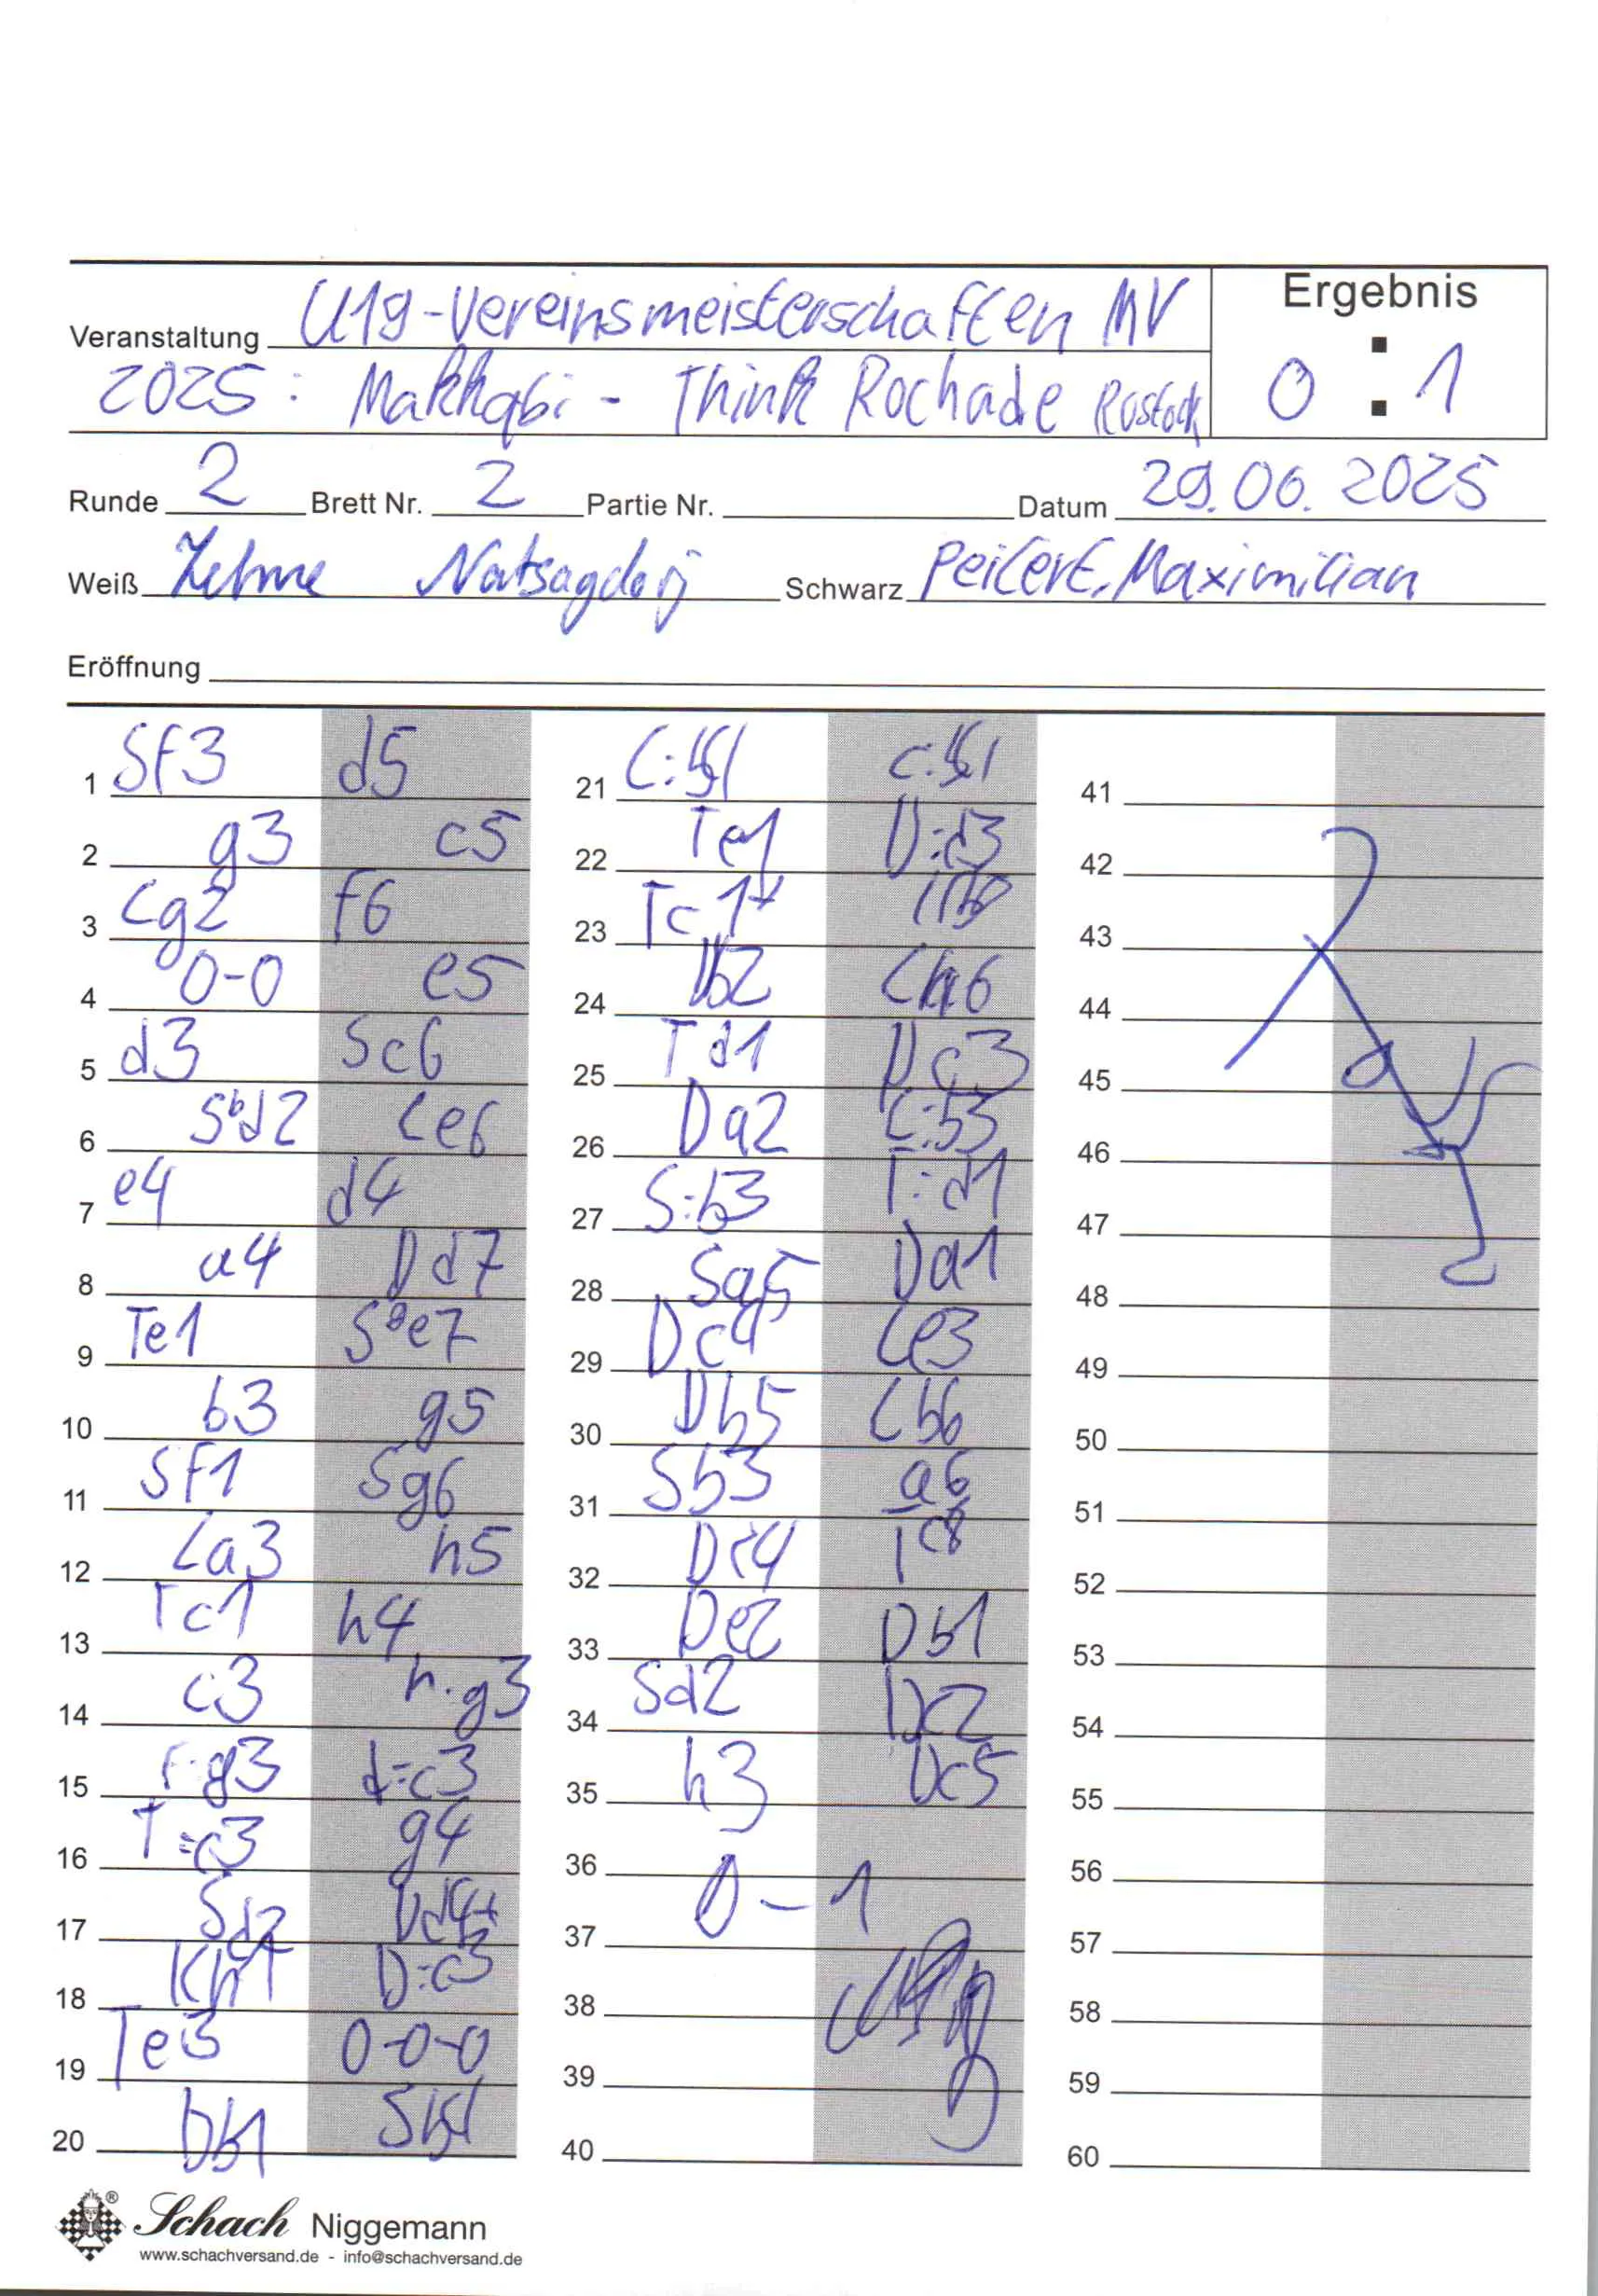 Ergebnis
Veranstaltung U19-Vereinsmeisterschaften MV
2025: Makkabi - Think Rochade Rostock
0 : 1
Runde 2 Brett Nr. 2 Partie Nr. Datum 29.06.2025
Weiß Natsagdorj Schwarz Peilert, Maximilian
Eröffnung
1 Sf3 d5
2 g3 c5
3 Lg2 f6
4 0-0 e5
5 d3 Sc6
6 Sbd2 Le6
7 e4 d4
8 a4 Dd7
9 Te1 Sge7
10 b3 g5
11 Sf1 Sg6
12 La3 h5
13 Tc1 h4
14 c3 h:g3
15 f:g3 d:c3
16 T:c3 g4
17 Sd2 Dd4+
18 Kh1 D:c3
19 Te3 0-0-0
20 Db1 Sb4
21 L:b4 c:b4
22 Te1 D:d3
23 Tc1+ Kb8
24 Db2 Lh6
25 Td1 Dc3
26 Da2 L:b3
27 S:b3 T:d1
28 Sa5 Da1
29 Dc4 Le3
30 Db5 Lb6
31 Sb3 a6
32 Dc4 Tc8
33 De2 Db1
34 Sd2 Dc2
35 h3 Dc5
36 0-1
37
38
39
40
41
42
43
44
45
46
47
48
49
50
51
52
53
54
55
56
57
58
59
60
Schach Niggemann
www.schachversand.de - info@schachversand.de